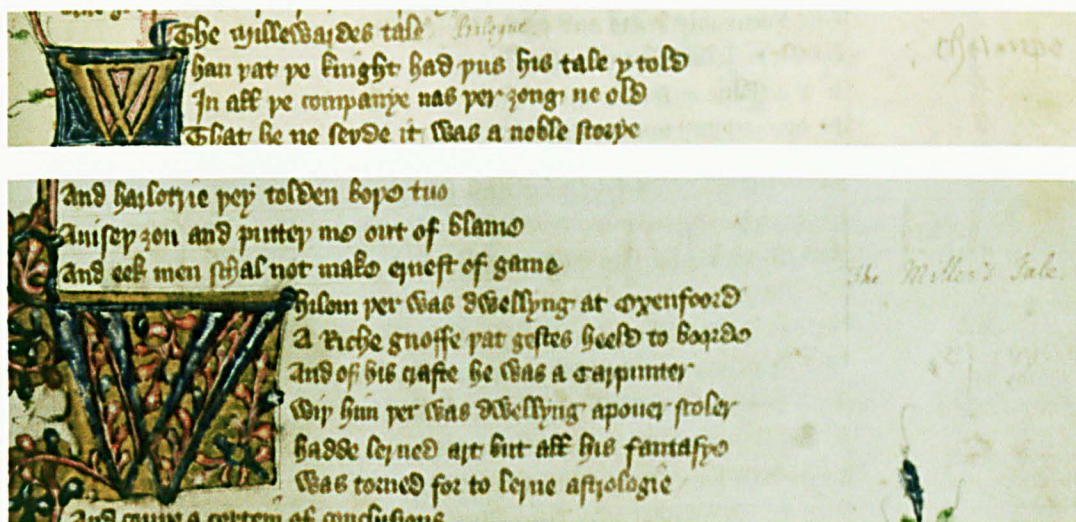 The Millewardes tale Prologue
Whan þat þe knight had þus his tale ytold
In all þe companye nas þer ȝong ne old
That he ne seyde it was a noble storye
And harlotrie þey tolden boþe tuo
Auiseþ ȝou and putteþ me out of blame
And eek men schal not make ernest of game
The Miller's Tale.
Whilom þer was dwellyng at Oxenfoord
A Riche gnoffe þat gestes heeld to boorde
And of his crafte he was a Carpunter
Wiþ him þer was dwellyng a pouer scoler
hadde lerned art but all his fantasye
Was torned for to lerne astrologie
And couþe a certein of conclusiouns